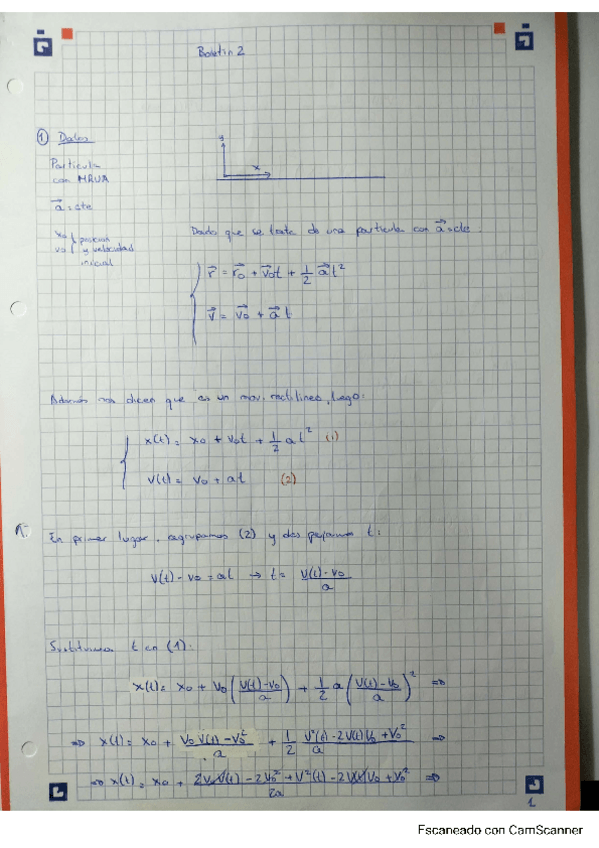 Boletín 2
① Datos
Partícula
con MRUA
a⃗ = cte
x₀ } posición
v₀ } y velocidad
inicial
y
x
Dado que se trata de una partícula con a⃗ = cte:
r⃗ = r⃗₀ + v⃗₀t + 1/2 a⃗t²
v⃗ = v⃗₀ + a⃗t
Además nos dicen que es un mov. rectilíneo, luego:
x(t) = x₀ + v₀t + 1/2 at² (1)
v(t) = v₀ + at (2)
En primer lugar, agrupamos (2) y despejamos t:
v(t) - v₀ = at → t = (v(t) - v₀)/a
Sustituimos t en (1):
x(t) = x₀ + v₀((v(t) - v₀)/a) + 1/2 a((v(t) - v₀)/a)² ⇒
⇒ x(t) = x₀ + (v₀v(t) - v₀²)/a + 1/2 (v²(t) - 2v(t)v₀ + v₀²)/a ⇒
⇒ x(t) = x₀ + (2v₀v(t) - 2v₀² + v²(t) - 2v(t)v₀ + v₀²)/2a ⇒
1
Escaneado con CamScanner